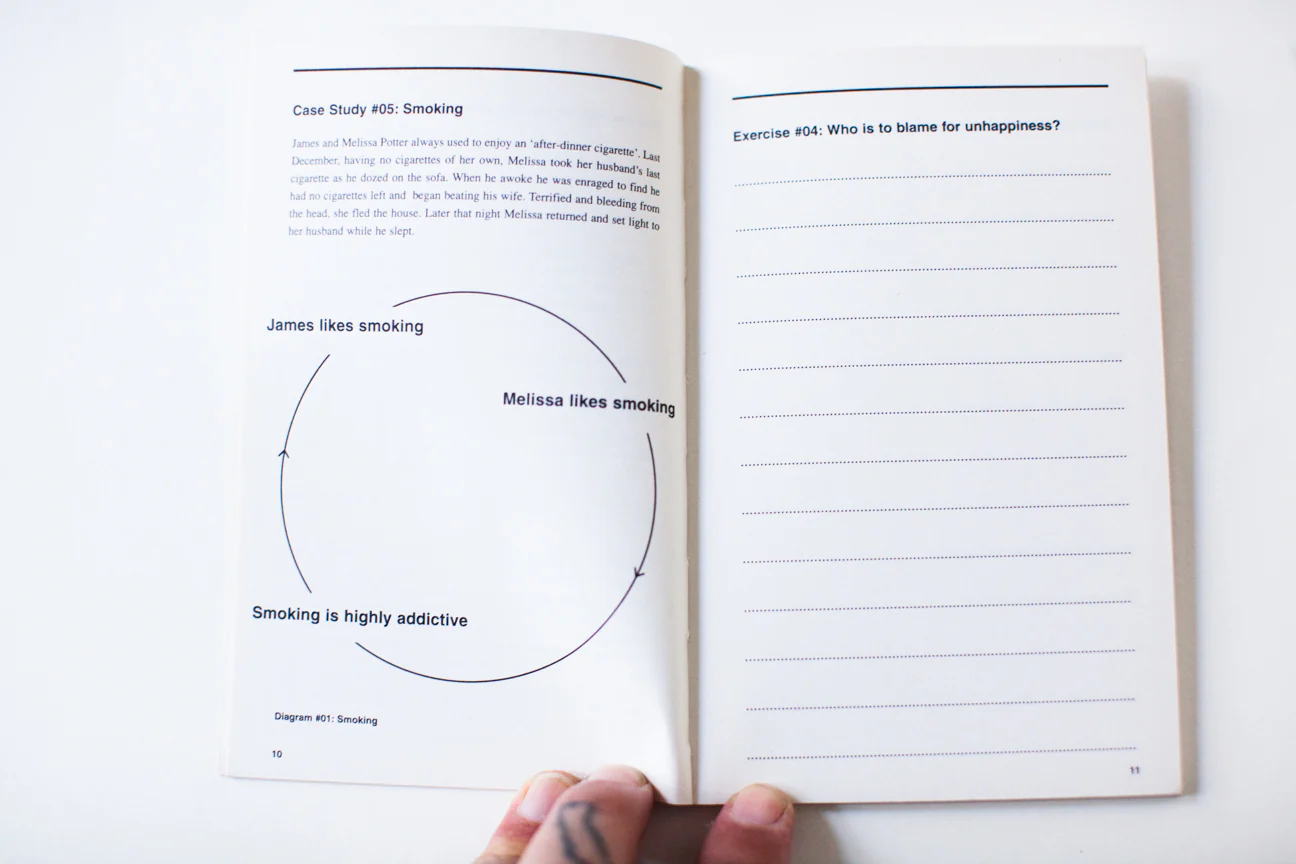 Case Study #05: Smoking
James and Melissa Potter always used to enjoy an ‘after-dinner cigarette’. Last
December, having no cigarettes of her own, Melissa took her husband’s last
cigarette as he dozed on the sofa. When he awoke he was enraged to find he
had no cigarettes left and began beating his wife. Terrified and bleeding from
the head, she fled the house. Later that night Melissa returned and set light to
her husband while he slept.
James likes smoking
Melissa likes smoking
Smoking is highly addictive
Diagram #01: Smoking
10
Exercise #04: Who is to blame for unhappiness?
11